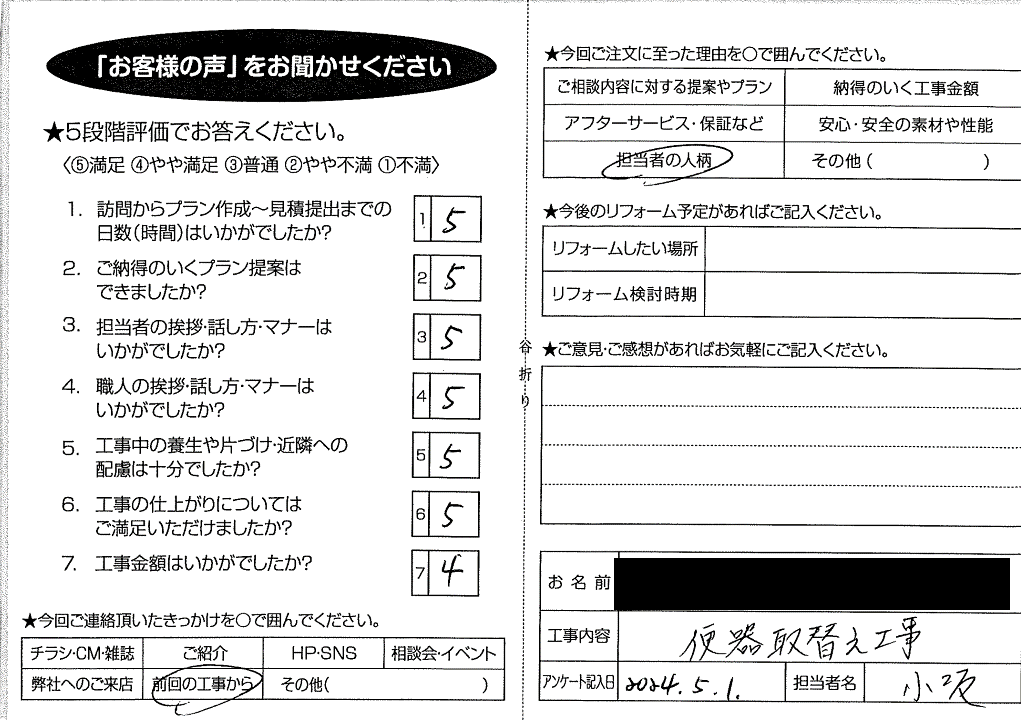 「お客様の声」をお聞かせください
★5段階評価でお答えください。
〈⑤満足 ④やや満足 ③普通 ②やや不満 ①不満〉
1. 訪問からプラン作成～見積提出までの
日数(時間)はいかがでしたか?
1 5
2. ご納得のいくプラン提案は
できましたか?
2 5
3. 担当者の挨拶・話し方・マナーは
いかがでしたか?
3 5
4. 職人の挨拶・話し方・マナーは
いかがでしたか?
4 5
5. 工事中の養生や片づけ・近隣への
配慮は十分でしたか?
5 5
6. 工事の仕上がりについては
ご満足いただけましたか?
6 5
7. 工事金額はいかがでしたか?
7 4
★今回ご連絡頂いたきっかけを○で囲んでください。
チラシ・CM・雑誌 ご紹介 HP・SNS 相談会・イベント
弊社へのご来店 前回の工事から その他( )
谷折り
★今回ご注文に至った理由を○で囲んでください。
ご相談内容に対する提案やプラン 納得のいく工事金額
アフターサービス・保証など 安心・安全の素材や性能
担当者の人柄 その他( )
★今後のリフォーム予定があればご記入ください。
リフォームしたい場所
リフォーム検討時期
★ご意見・ご感想があればお気軽にご記入ください。
お名前
工事内容 便器取替え工事
アンケート記入日 2024.5.1. 担当者名 小坂